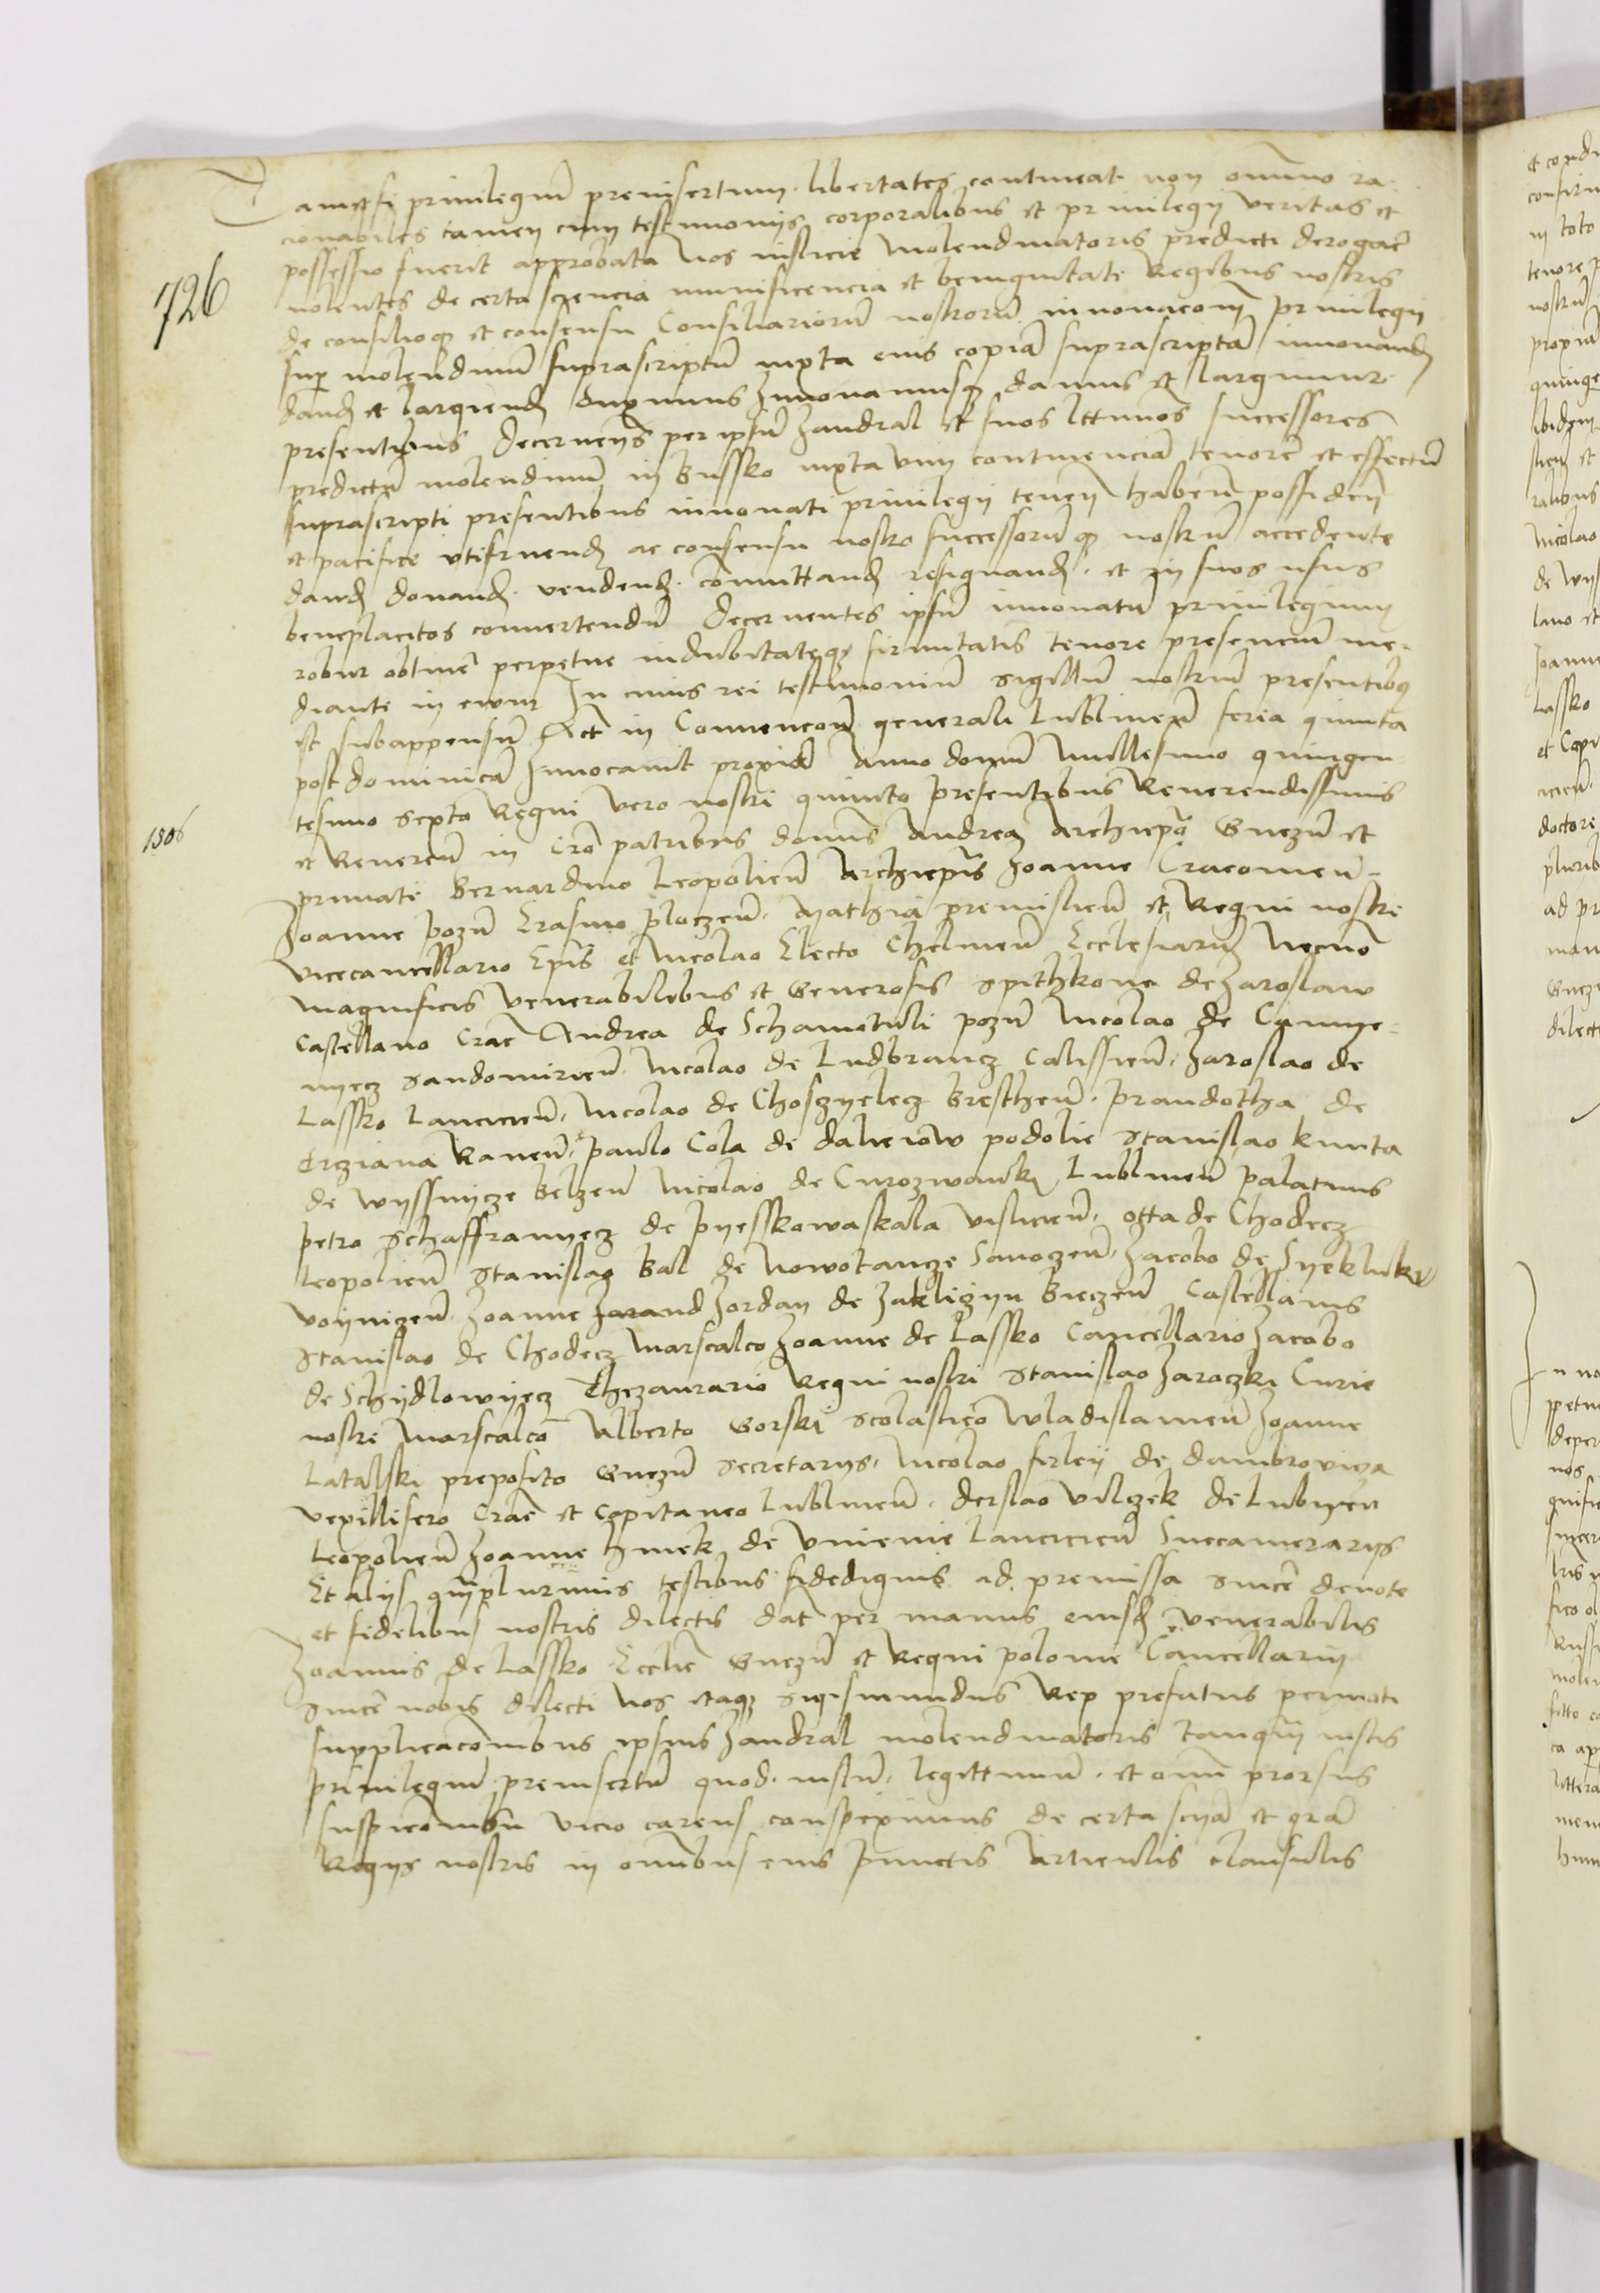 Tametsi privilegiũ preinsertum libertates contineat non omnino ra-
cionabiles tamen cum testimoniis corporalibus et privilegii veritas et
possessio fuerit approbata Nos insticie Molendinatoris predicti derogarẽ
nolentes de certa sciencia munificencia et benignitate Regibus nostris
726
de consilioq; et consensu Consiliariorũ nostrorũ innovacoñ privilegii
sup molendinũ suprascriptũ iuxta eius copiã suprascriptã innovand
dand et largiend duximus Innovamusq; damus et largimur
presentibus Decernens per ipsũ Jandral et suos lttimos successores
predictũ molendinũ in Bussko iuxta vim continenciã tenorẽ et effectũ
suprascripti presentibus innovati privilegii teneñ habeñ possideñ
et pacifice utifruend ac consensu nostro successorũq; nostrũ accedente
dand donand vendend comuttand resignand et in suos usus
beneplacitos convertendũ Decernentes ipsũ innovatũ privilegium
robur obtinẽ perpetue indubitateq; firmitatis tenore presenciũ me-
diante in evum In cuius rei testimoniũ sigillũ nostrũ presentibus
est subappensũ Act in Convencoñ generali Lublineñ feria quinta
post dominicã Invocavit proximã Anno domini Millesimo quingen
tesimo sexto Regni vero nostri quinto presentibus Reverendissimis
1506
et Reverendũ in Cro patribus dominis Andrea Archiepo Gnezñ et
primate Bernardino Leopolieñ Archiepis Joanne Cracovieñ
Joanne pozñ Erasmo ploczeñ Mathia premislieñ et Regni nostri
vicecancellario Epis et Nicolao Electo Chelmeñ Ecclesiarũ Necnõ
magnificis venerabilibus et Generosis Spithkone de Jaroslaw
Castellano Crac Andrea de Schamotuli pozñ Nicolao de Camye-
nyecz Sandomirieñ Nicolao de Ludbrancz Calissieñ Jaroslao de
Lassko Lancicieñ Nicolao de Chosczyelecz Bresthen Prandotha de
Trcziana Raveñ Paulo Cola de dalieiow podolie Stanislao kmita
de wyssnycze belzeñ Nicolao de Curozwanki Lublineñ palatinis
petro Schaffranyecz de pyesskowaskala vislicieñ Otta de Chodecz
Leopolieñ Stanislao Bal de Nowotancze Sanoczeñ Jacobo de Syekluky
voyniczeñ Joanne Jorand Jordan de Zakliczyn Bieczeñ Castellanis
Stanislao de Chodecz Marscalco Joanne de Lassko Cancellario Jacobo
de Schydlowyecz Thezaurario Regni nostri Stanislao Jaroczki Curie
nostre Marscalco Alberto Gorski Scolastico wladislavieñ Joanne
Latalski preposito Gnezñ Secretariis Nicolao firleij de dambrovicza
vexillifero Crac et Capitaneo Lublineñ Derslao vilczek de Lubyen
Leopolieñ Joanne hinek de Unienie Lancicieñ Succamerariis
Et aliis quãplurimis testibus fidedignis ad premissa sincẽ devote
et fidelibus nostris dilectis dat per manus eiusd venerabilis
Joannis de Lassko Ecclie Gnezñ et Regni polonie Cancellarii
sincẽ nobis dilecti Nos itaq; Sigismundus Rex prefatus permoti
supplicacoñibus ipsius Jandral molendinatoris tanquã iustis
privilegiũ preinsertũ quod iustũ legittimũ et omni prorsus
suspicioñ vicio carens conspeximus de certa sciã et grã
Regiis nostris in omnibus eius punctis Articulis clausulis